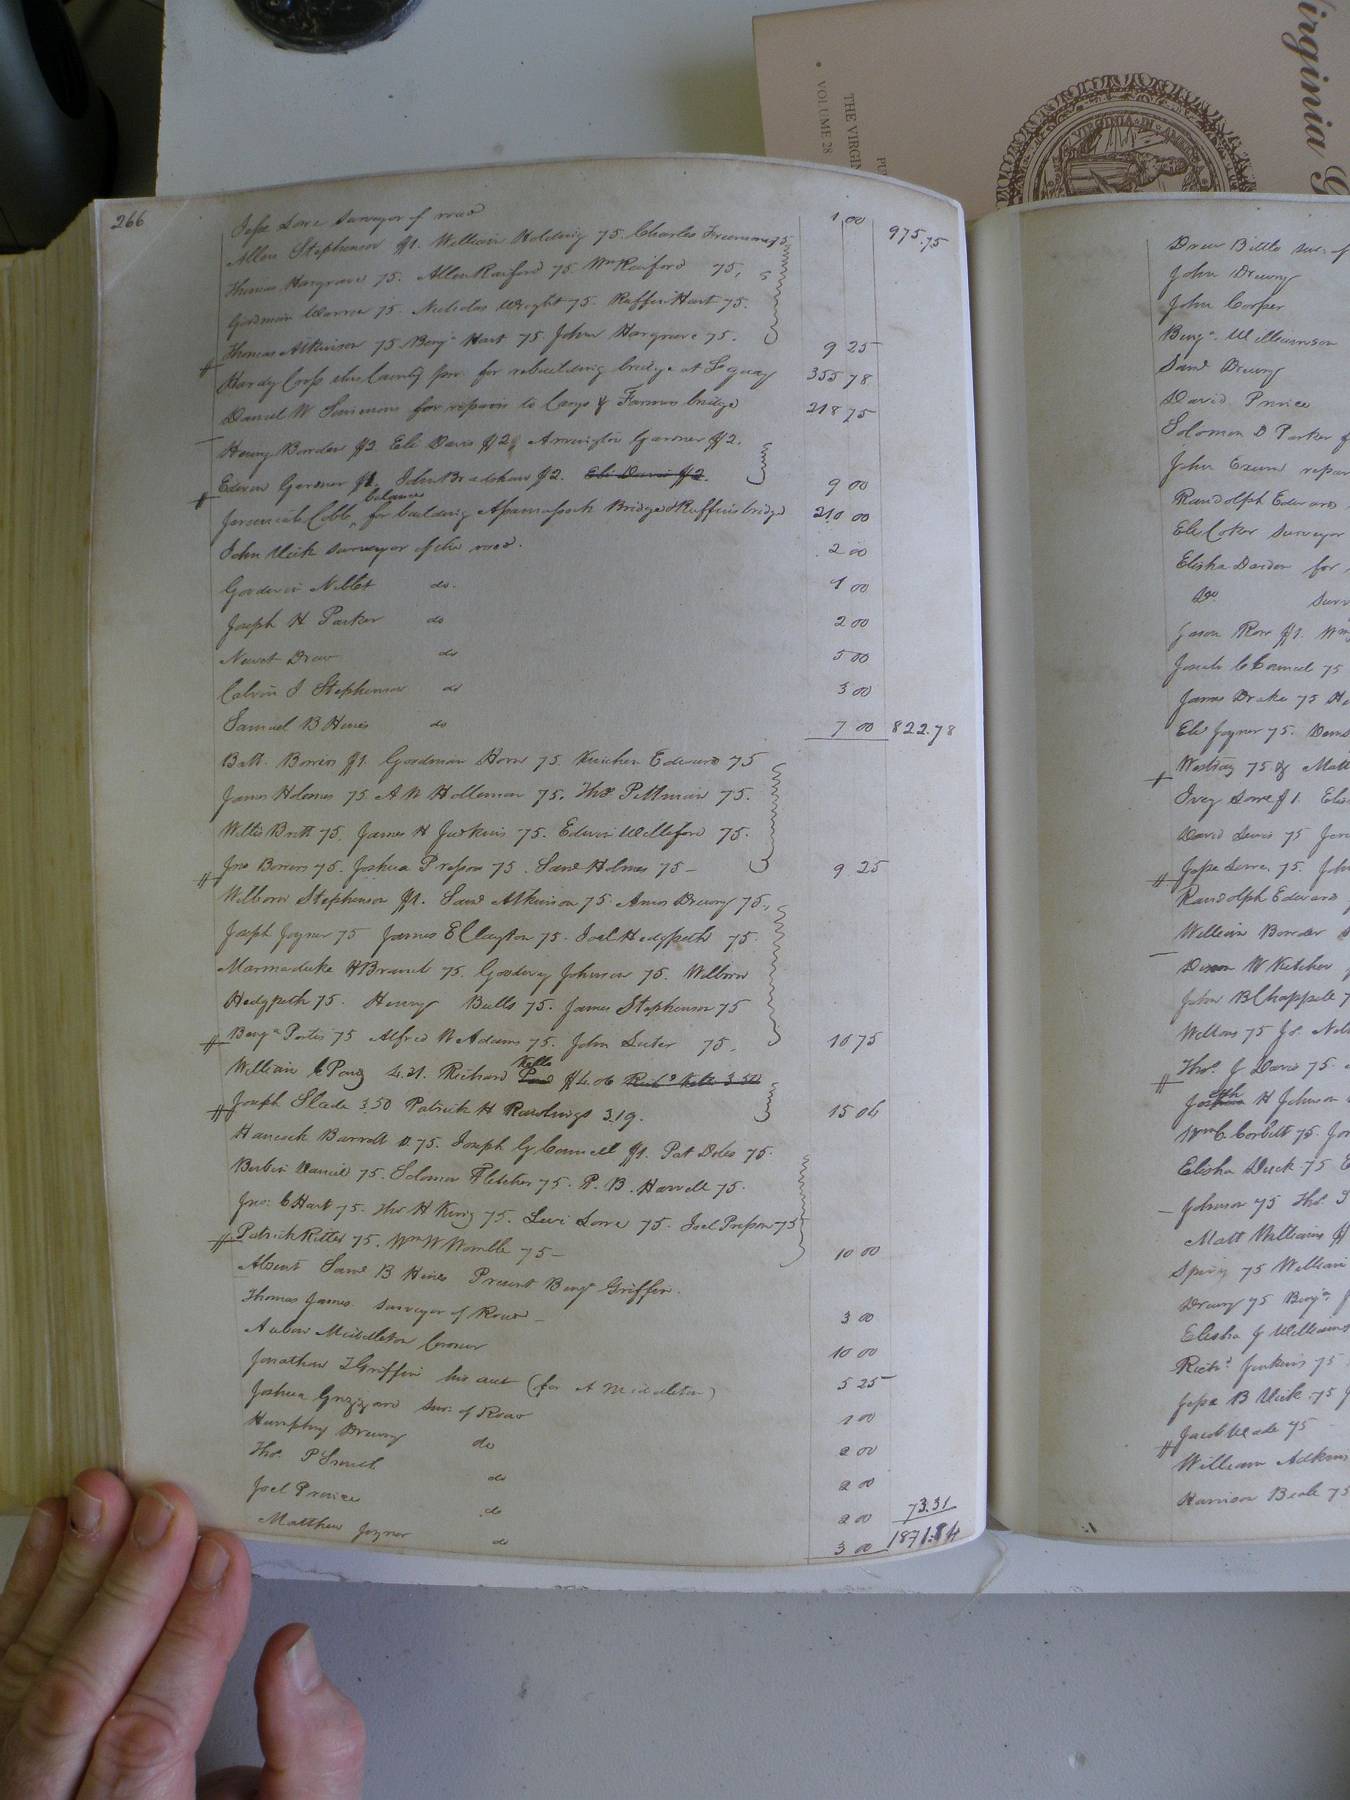 266
Jesse Love surveyor of road 1 00 975.75
Allen Stephenson $1. William Holding 75. Charles Freeman 75
Thomas Hargrave 75. Allen Raiford 75 Wm Raiford 75,
Goodman Warren 75. Nicholas Wright 75. Ruffin Hart 75.
Thomas Atkinson 75 Benja Hart 75 John Hargrave 75. 9 25
Hardy Cross this County for rebuilding bridge at Sq quay 355 78
Daniel W Simmons for repairs to Carys & Farmers bridge 218 75
Henry Borden $2. Eli Davis $2 Arrington Gardner $2.
Edwin Gardner $1. John Bradshaw $2. Eli Davis $2. 9 00
Jeremiah Cobb balance for building Apamapock Bridge & Ruffins bridge 210 00
John Vick surveyor of the road. 2 00
Goodwin Niblet do. 1 00
Joseph H Parker do 2 00
Newet Drew do 5 00
Calvin J Stephenson do 3 00
Samuel B Hines do 7 00 822.78
Batt. Bowers $1. Goodman Horn 75. Kinchen Edwards 75
James Holmes 75 A W Holleman 75. Thos. Pittman 75.
Willis Britt 75. James H Judkins 75. Edwin Welleford 75.
Jno Bowers 75. Joshua Presson 75. Saml Holmes 75- 9 25
Wilborn Stephenson $1. Saml Atkinson 75. Amos Drewry 75,
Joseph Joyner 75 James E Clayton 75. Joel Hedgpeth 75.
Marmaduke H Branch 75. Goodwyn Johnson 75. Wilborn
Hedgpeth 75. Henry Butts 75. James Stephenson 75
Benja Portis 75 Alfred W Adams 75. John Luter 75. 10 75
William C Pond 4.21. Richard Pond Kello $4.06 Richd Kello 3.50
Joseph Slade 3.50 Patrick H Rawlings 3.19. 15 04
Hancock Barrett 75. Joseph G Councill $1. Pat Doles 75.
Daniel 75. Solomon Fletcher 75. P. B. Harrell 75.
Jno. C Hart 75. Thos H King 75. Levi Lowe 75. Joel Presson 75
Patrick Ritter 75. Wm W Womble 75- 10 00
Absent Saml B Hines Present Benja Griffin.
Thomas James surveyor of Road - 3 00
Middleton Coroner 10 00
Jonathan T Griffin his acct (for A Middleton) 5 25
Joshua Grizzard sur. of Road 1 00
Humphry Drewry do 2 00
Thos. P Smith do 2 00
Joel Prince do 2 00 73.31
Matthew Joyner do 3 00 1871.84
Drew Bittle sur. of
John Drewry
John Corper
Benja. Williamson
Saml Drewry
David Prince
Solomon D Parker
John Exum repair
Randolph Edwards
Eli Coker surveyor
Elisha Darden for
Do. surv
Jason Rose $1. Wm
Josiah C Council 75
James Drake 75
Eli Joyner 75.
Westray 75 & Matt
Ivey Lowe $1.
David Lewis 75
Jesse Lowe. 75. John
Randolph Edwards
William Borden
W Kitchen
John B Chappell 7
Wellons 75
Thos. J Davis 75.
H Johnson
Wm C Corbitt 75.
Elisha Duck 75
Johnson 75 Thos.
Matt Williams $
Spivy 75 William
Drewry 75 Benja.
Elisha J Williams
Richd. Jenkins 75
Jesse B Vick 75
Jacob Wade 75
William Adkins
Harrison Beale 75
irginia
THE VIRGIN
VOLUME 28
PU
VIRGINIA